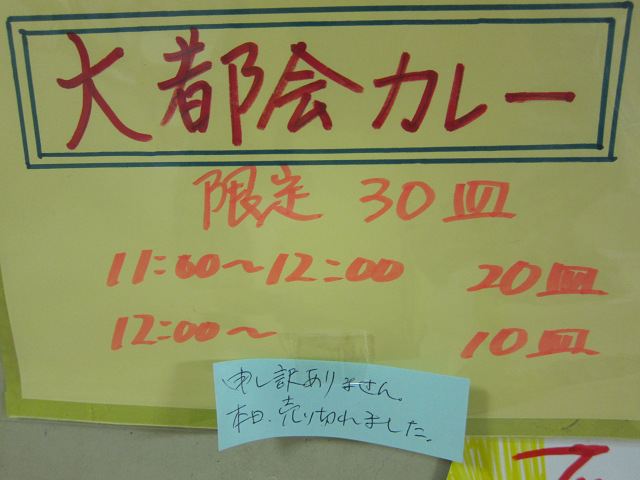 大都会カレー
限定 30皿
11:00～12:00 20皿
12:00～ 10皿
申し訳ありません。
本日、売り切れました。